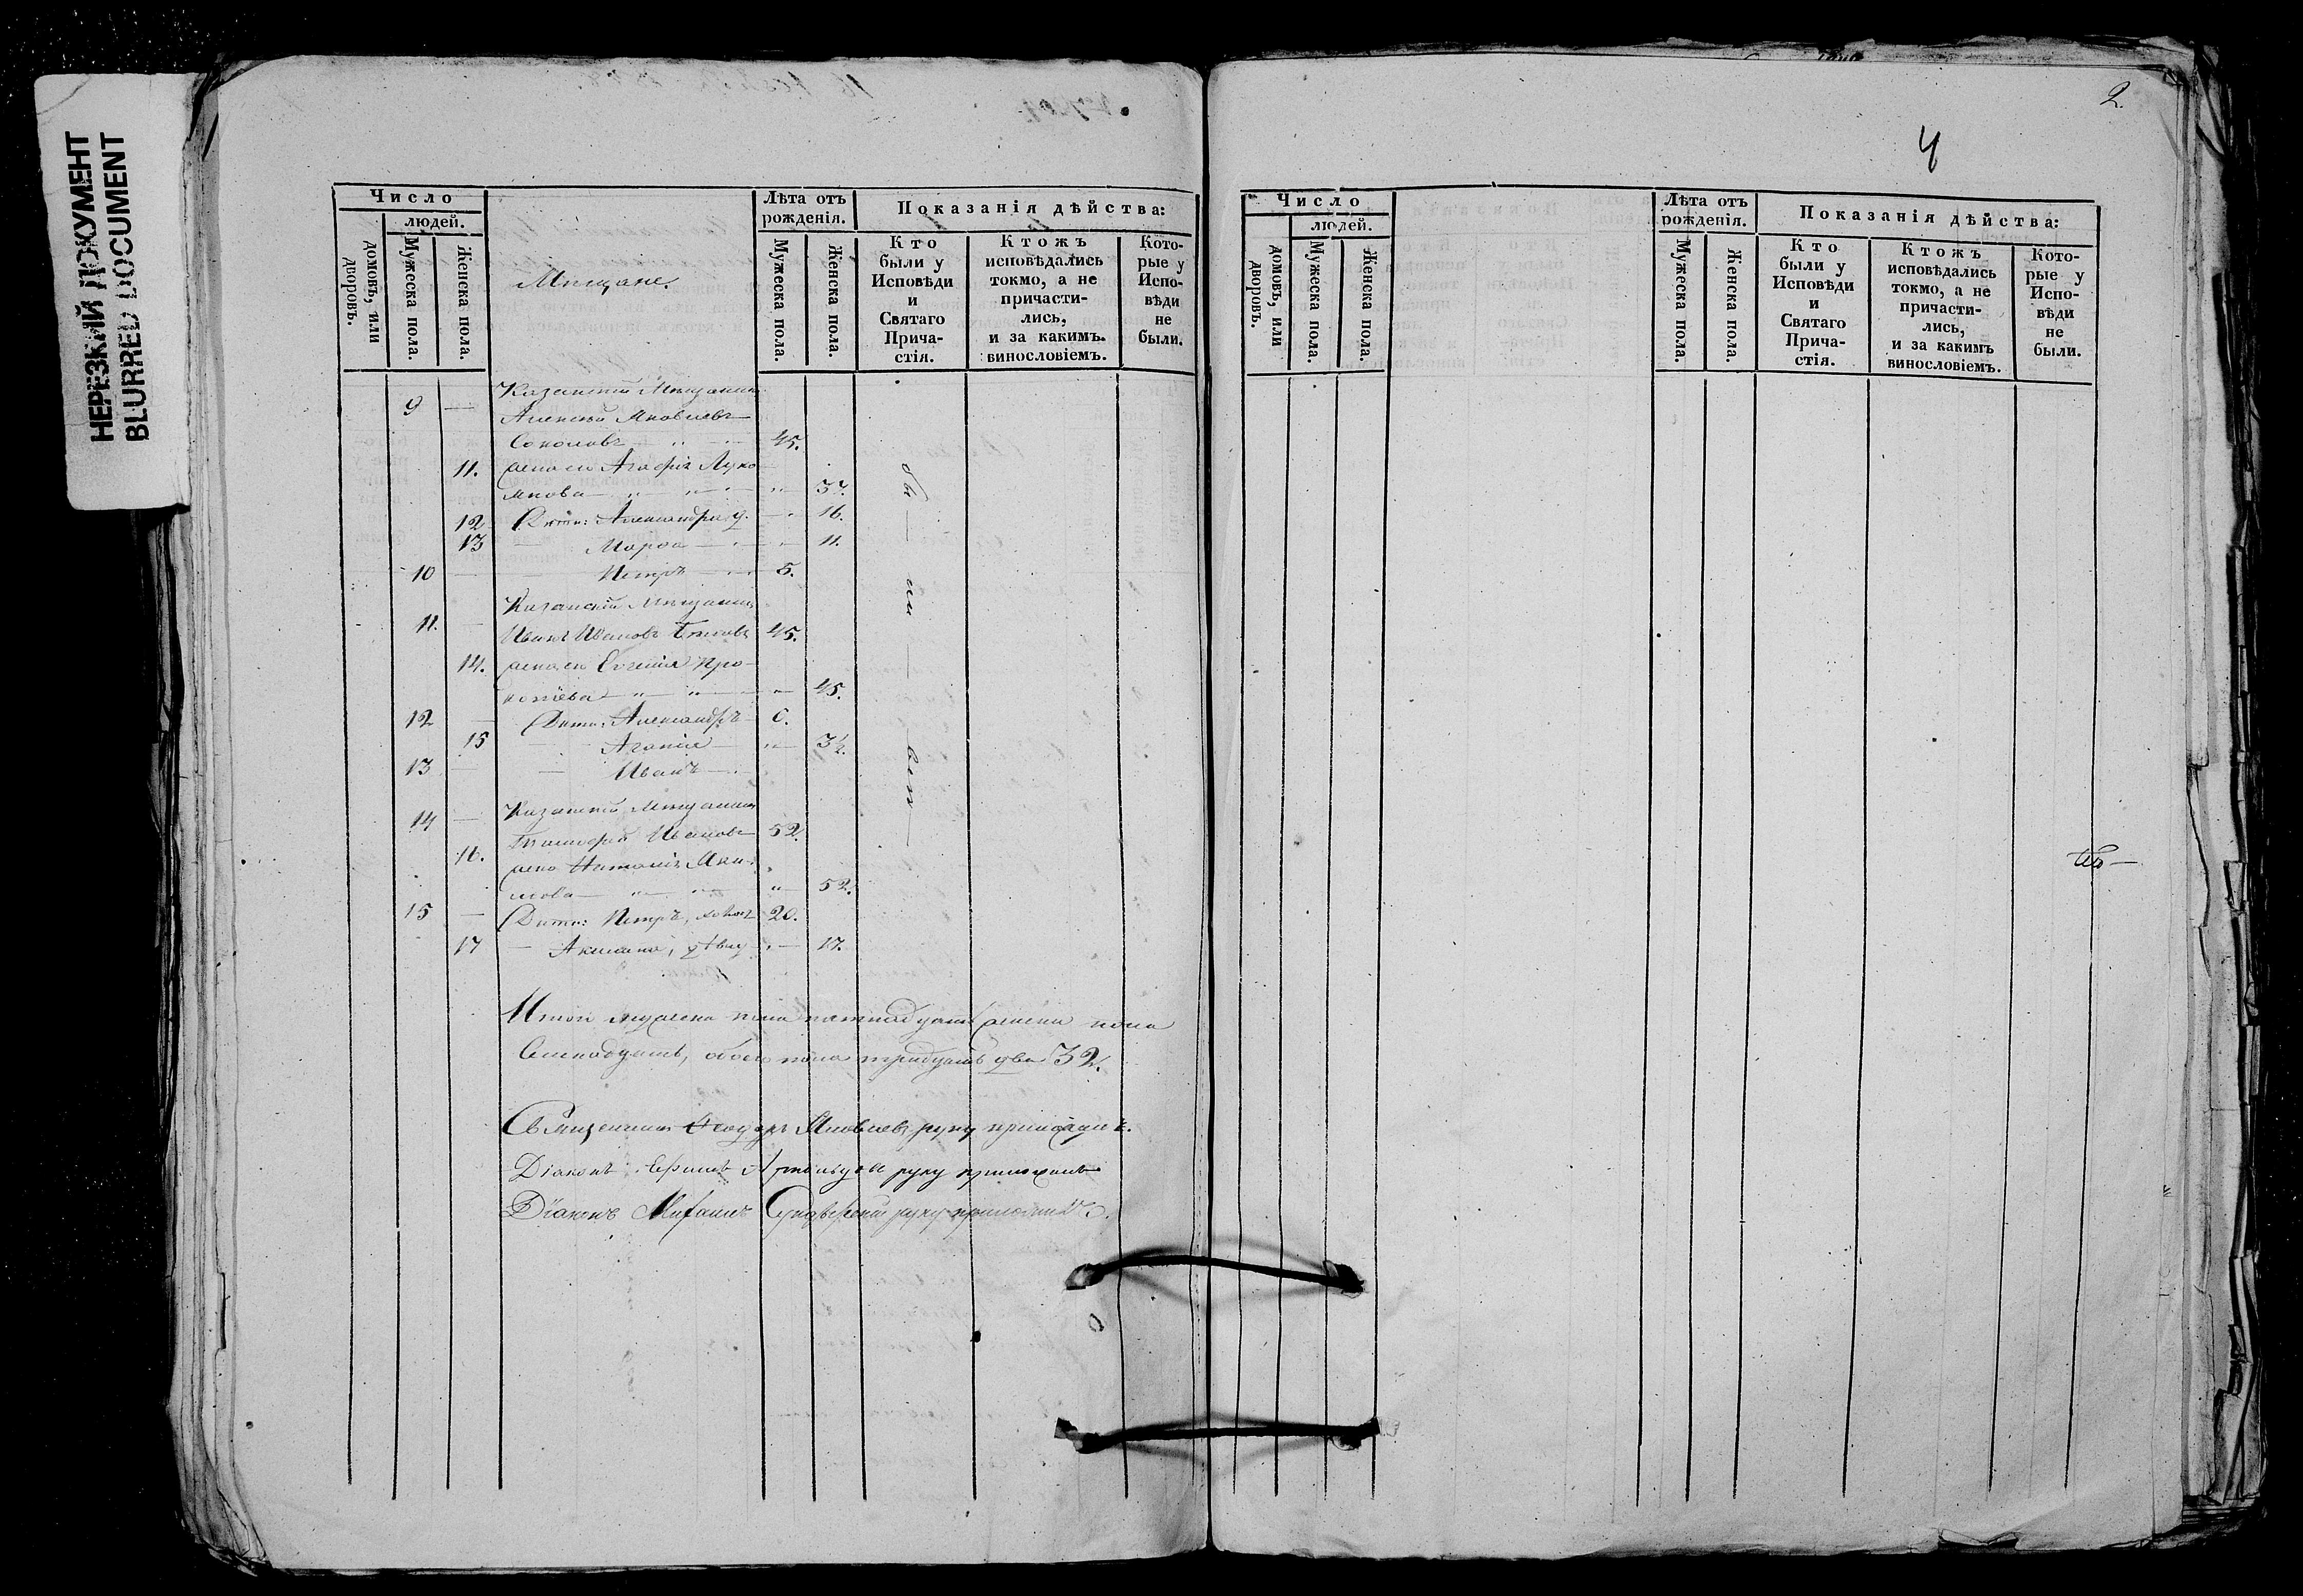 НЕРЕЗКИЙ ДОКУМЕНТ
BLURRED DOCUMENT
Число
людей.
домовъ, или дворовъ.
Мужеска пола.
Женска пола.
Мѣщане.
Лѣта отъ рожденія.
Мужеска пола.
Женска пола.
Показанія дѣйства:
Кто были у Исповѣди и Святаго Прича-стія.
Ктожъ исповѣдались токмо, а не причасти-лись, и за какимъ винословіемъ.
Кото-рые у Испо-вѣди не были.
Казанскій Мѣщанинъ
9 — Алексѣй Яковлевъ
Соколовъ 45.
11. жена ео Агафія Лукo
янова 37.
12 Дѣти: Александра д. 16.
13 Марѳа 11.
10 — Петръ 5.
Казанскій Мѣщанинъ
11. — Иванъ Ивановъ 45.
14. жена ео Евгенія Про
копіева 45.
12 — Дѣти: Александръ 6.
15 Агапія 3½.
13 — Иванъ
Казанскій Мѣщанинъ
14 — Тимофей Ивановъ 52
16. жена Наталія Яки
мова 52.
15 — Дѣти: Петръ, холос 20.
17 — Акилина, дѣвиц 17.
бы — ли — всѣ —
Итого мужеска пола пятнадцать женска пола
Семнадцать, обоего пола тридцать два 32.
Священникъ Ѳеодоръ Яковлевъ руку приложилъ.
Діаконъ Ефимъ руку приложилъ
Діаконъ Михаилъ руку приложилъ.
2.
4
Число
людей.
домовъ, или дворовъ.
Мужеска пола.
Женска пола.
Лѣта отъ рожденія.
Мужеска пола.
Женска пола.
Показанія дѣйства:
Кто были у Исповѣди и Святаго Прича-стія.
Ктожъ исповѣдались токмо, а не причасти-лись, и за какимъ винословіемъ.
Кото-рые у Испо-вѣди не были.